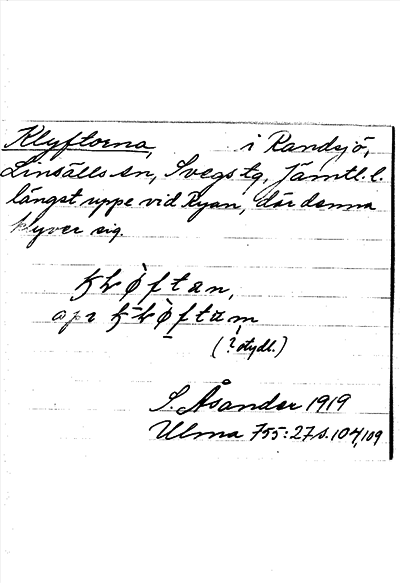 Klyftorna, i Randsjö,
Linsälls sn, Svegs tg, Jämtl. l.
längst uppe vid Ryan, där denna
klyver sig.
(? otydl.)
S. Åsander 1919
Ulma 755:27 s. 104, 109